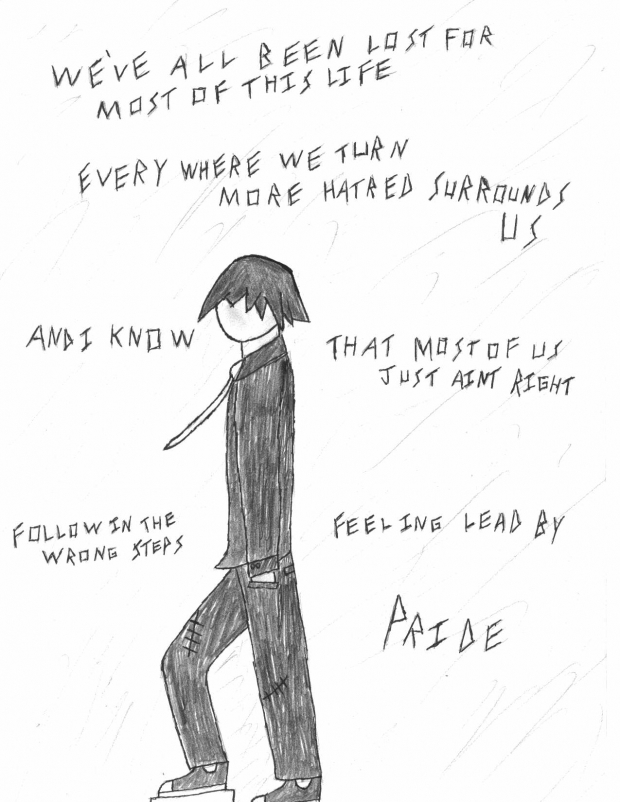 WE'VE ALL BEEN LOST FOR
MOST OF THIS LIFE
EVERY WHERE WE TURN
MORE HATRED SURROUNDS
US
AND I KNOW
THAT MOST OF US
JUST AINT RIGHT
FOLLOW IN THE
WRONG STEPS
FEELING LEAD BY
PRIDE